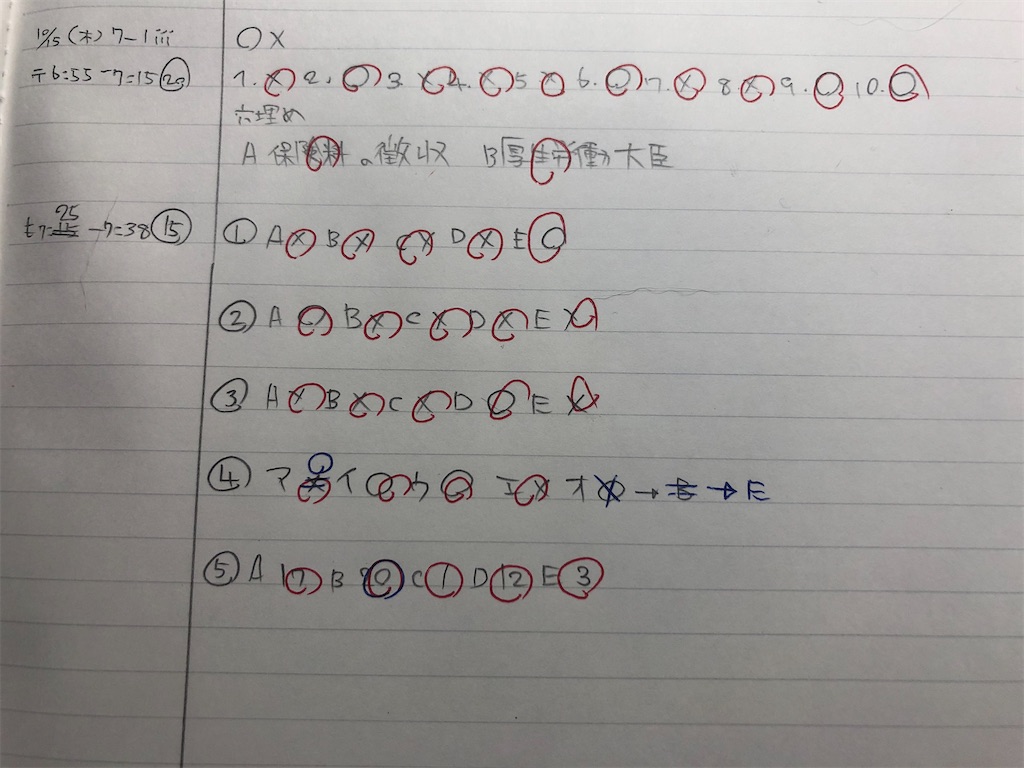 10/15 (木) 7-1 iii
〒6:55-7:15 20
○×
1. × 2. ○ 3 × 4. × 5 × 6. ○ 7. × 8 × 9. ○ 10. ○
穴埋め
A 保険料の徴収 B 厚生労働大臣
25
-7:38 15
① A × B × C × D × E ○
② A ○ B × C × D × E ×
③ A × B × C × D ○ E ×
④ ア ○ イ ○ ウ ○ エ × オ × → E
⑤ A 17 B C 1 D 12 E 3